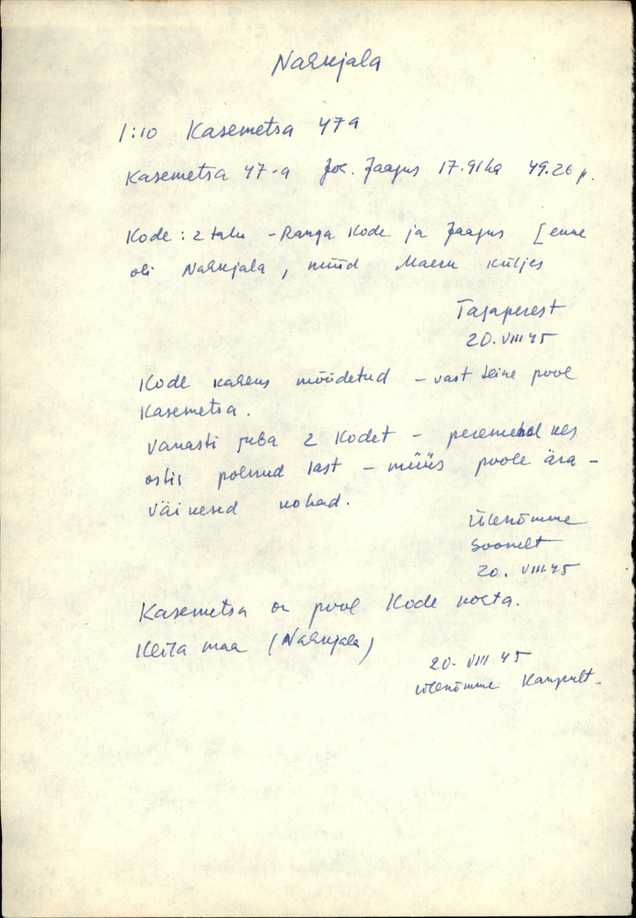 Nahkjala
1:10 Kasemetsa 47a
Kasemetsa 47-a Jok. Jaagus 17.91ha 49.26 p.
Kode: 2 talu - Ranga Kode ja Jaagus [enne
oli Nahkjala, nüüd Maeru küljes
Tagaperest
20. VIII 45
Kode kaheks mõõdetud - vast teine pool
Kasemetsa.
Vanasti juba 2 Kodet - peremehel kes
ostis polnud last - müüs poole ära -
väikesed kohad.
Ülenõmme
Soonelt
20. VIII 45
Kasemetsa on pool Kode kohta.
Kleita maa (Nahkjala)
20. VIII 45
Ülenõmme